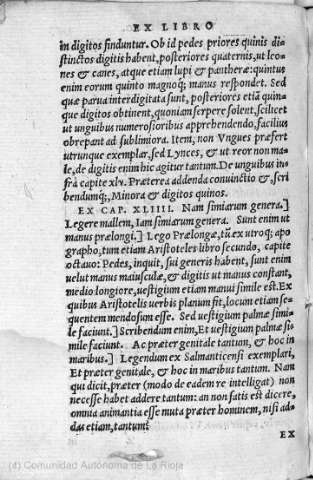 EX LIBRO
in digitos finduntur. Ob id pedes priores quinis di-
stinctos digitis habent, posteriores quaternis, ut leo-
nes & canes, atque etiam lupi & pantheræ: quintus
enim eorum quinto magnoq; manus respondet. Sed
quæ parua interdigitata sunt, posteriores etiã quin-
que digitos obtinent, quoniam serpere solent, scilicet
ut unguibus numerosioribus apprehendendo, facilius
obrepant ad sublimiora. Item, non Vngues præfert
utrunque exemplar, sed Lynces, & ut reor non ma-
le, de digitis enim hic agitur tantum. De unguibus in-
frà capite xlv. Præterea addenda conuinctio &, scri
bendumq;, Minora & digitos quinos.
EX CAP. XLIIII. Nam simiarum genera.]
Legere mallem, Iam simiarum genera. Sunt enim ut
manus prælongi.] Lego Prælongæ, tũ ex utroq; apo
grapho, tum etiam Aristoteles libro secundo, capite
octauo: Pedes, inquit, sui generis habent, sunt enim
uelut manus maiusculæ, & digitis ut manus constant,
medio longiore, uestigium etiam manui simile est. Ex
quibus Aristotelis uerbis planum fit, locum etiam se-
quentem mendosum esse. Sed uestigium palmæ simi-
le faciunt.] Scribendum enim, Et uestigium palmæ si-
mile faciunt. Ac præter genitale tantum, & hoc in
maribus.] Legendum ex Salmanticensi exemplari,
Et præter genitale, & hoc in maribus tantum. Nam
qui dicit, præter (modo de eadem re intelligat) non
necesse habet addere tantum: an non satis est dicere,
omnia animantia esse muta præter hominem, nisi ad-
das etiam, tantum?
EX
(c) Comunidad Autónoma de La Rioja